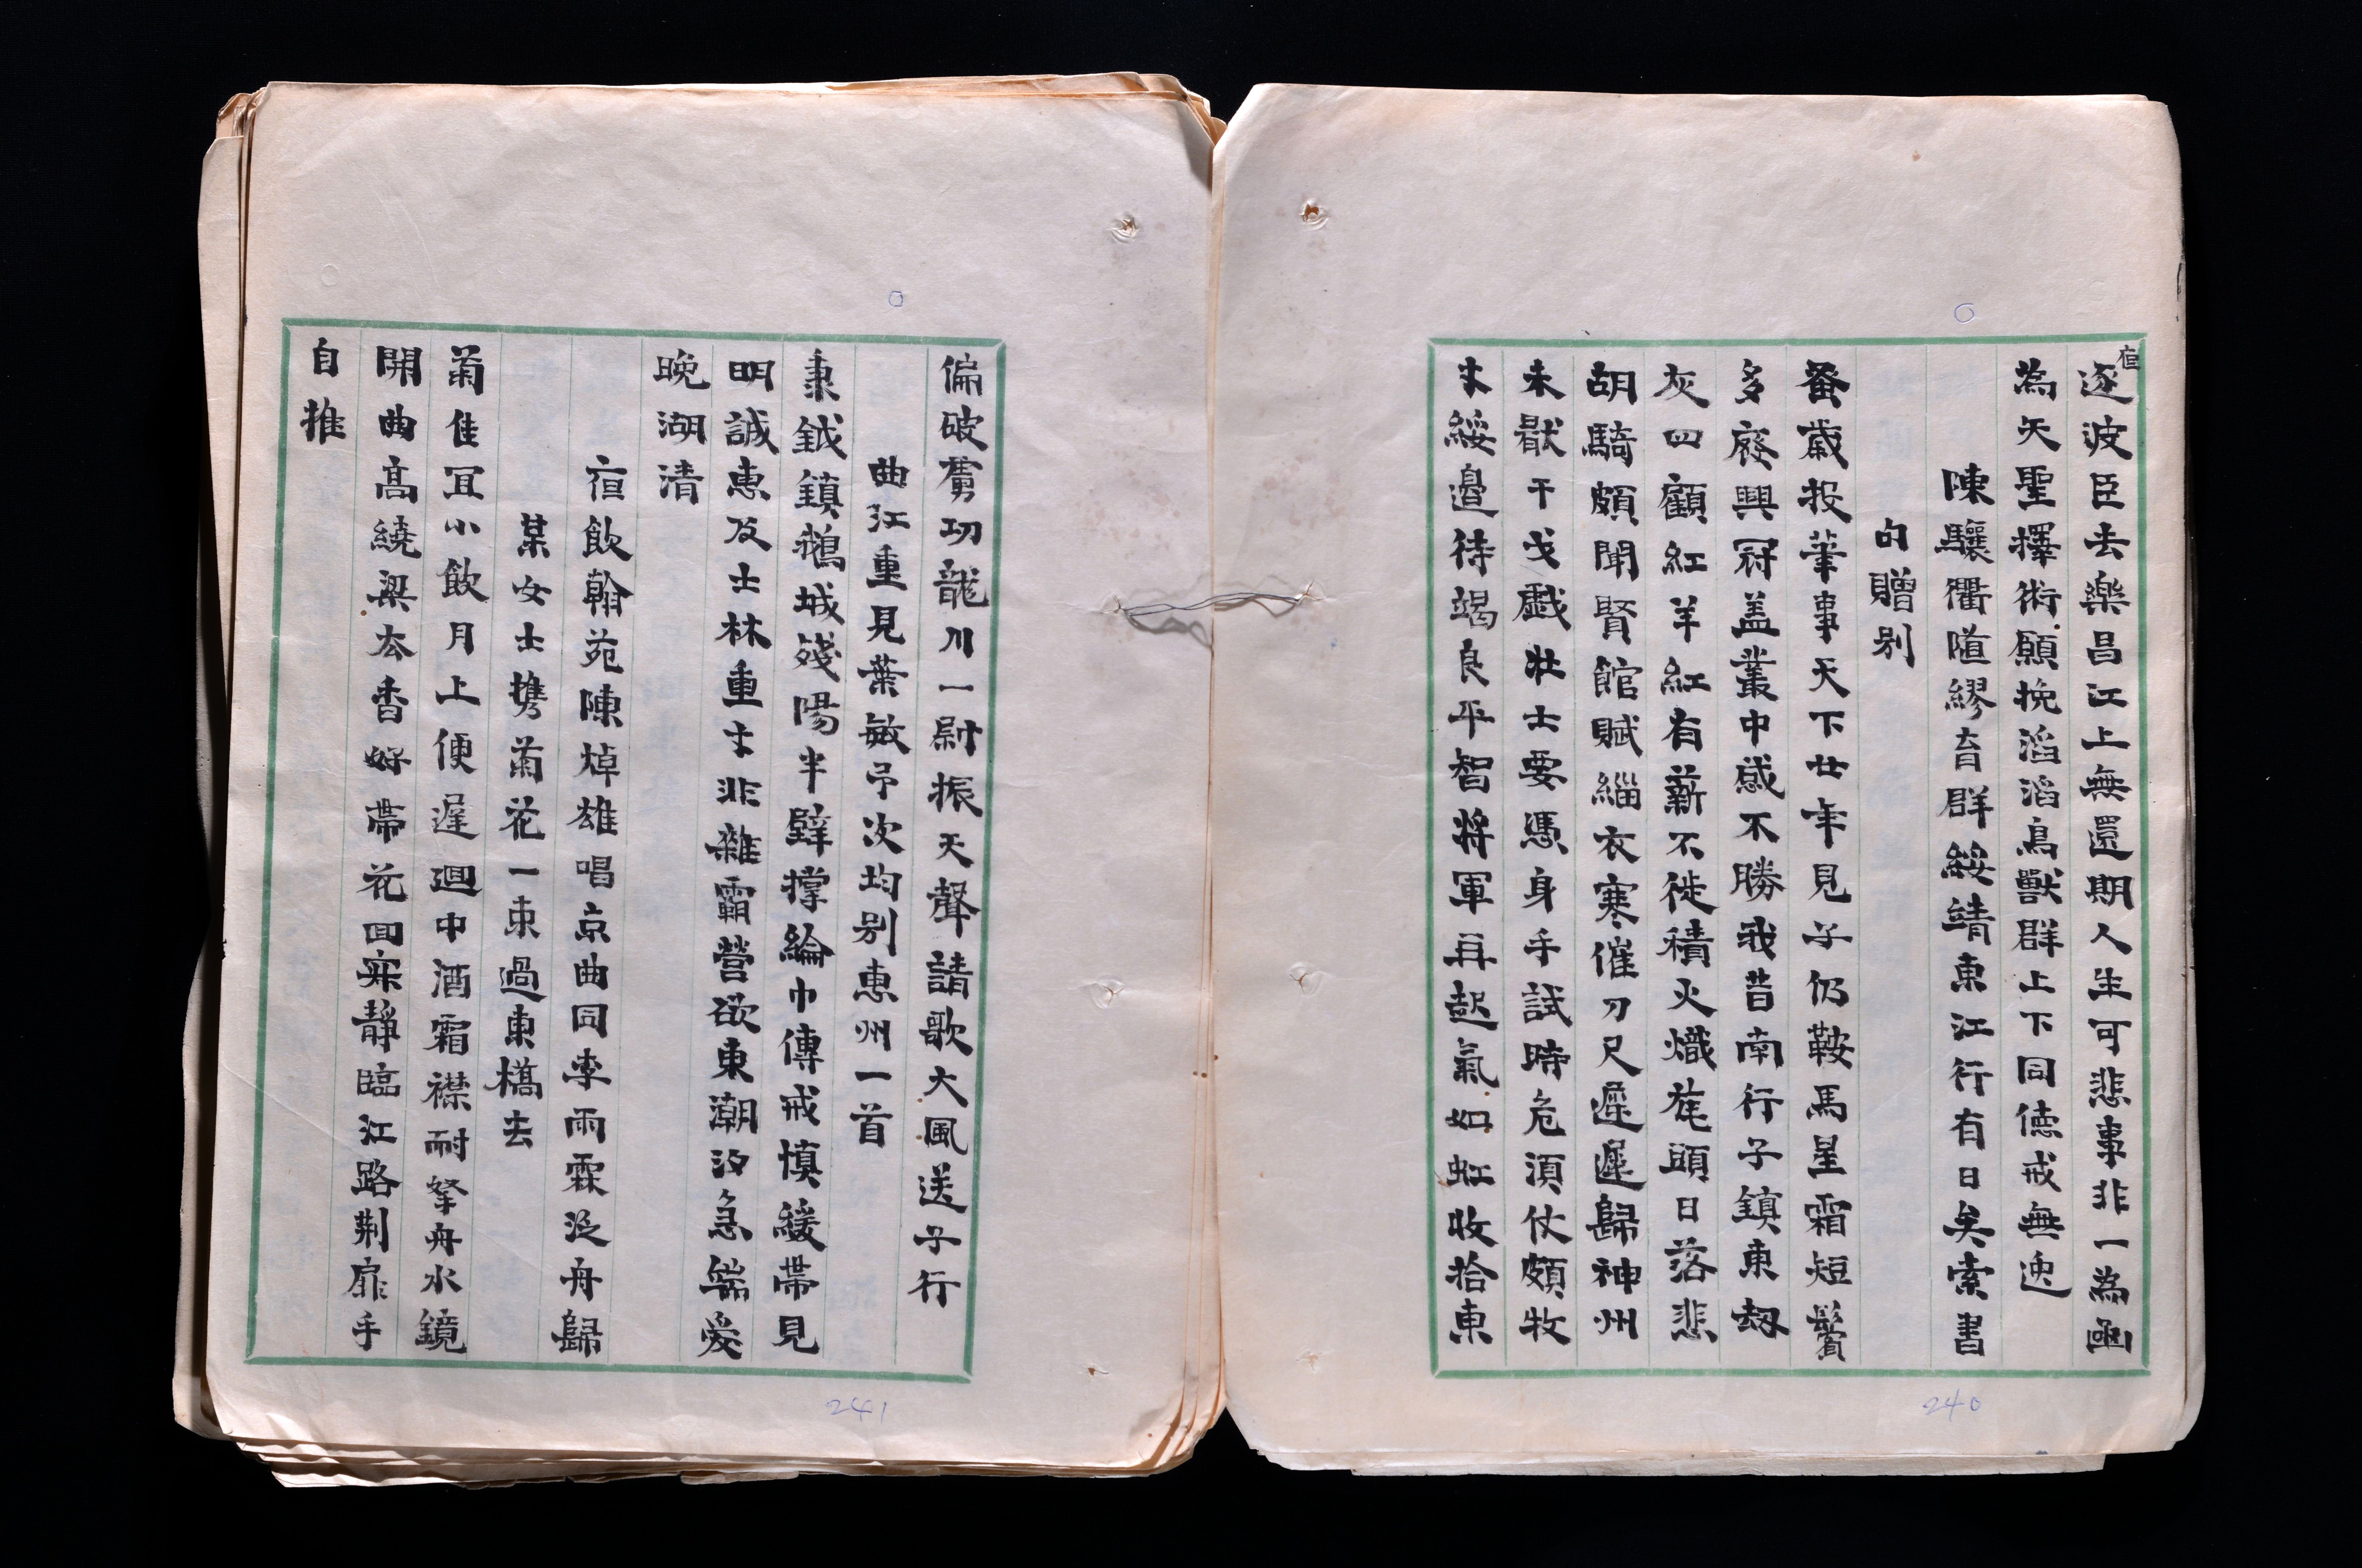 逐波臣去樂昌江上無還期人生可悲事非一為函
宿
為矢聖擇術願挽滔滔鳥獸群上下同德戒無逸
陳驤衢隨繆育群綏靖東江行有日矣索書
句贈別
蚤歲投筆事天下廿年見子仍鞍馬星霜短鬢
多廢興冠盖叢中感不勝我昔南行子鎮東劫
灰四顧紅羊紅有薪不徙積火熾旄頭日落悲
胡騎頗聞賢館賦緇衣寒催刀尺遲遲歸神州
未猒干戈戲壯士要憑身手試時危須仗頗牧
才綏邊待竭良平智將軍再起氣如虹收拾東
240
偏破虜功龍川一尉振天聲請歌大風送子行
曲江重見葉敏予次均別惠州一首
秉鉞鎮鵝城殘陽半壁撐綸巾傳戒慎緩帶見
明誠惠及士林重才非雜霸營欲東潮汐急耑愛
晚湖清
宿飲翰苑陳焯雄唱京曲同李雨霖泛舟歸
某女士攜菊花一束過東橋去
菊佳宜小飲月上便遲迴中酒霜襟耐拏舟水鏡
開曲高繞梁夳香好帶花回寀靜臨江路荆扉手
自推
241